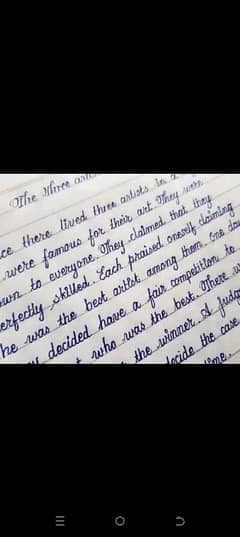 The Three
there lived three artists in a
were famous for their art. They were
to everyone. They claimed that they
skilled. Each praised oneself claiming
he was the best artist among them. One
decided have a fair competition to
who was the best. There
the winner. A
decide the case